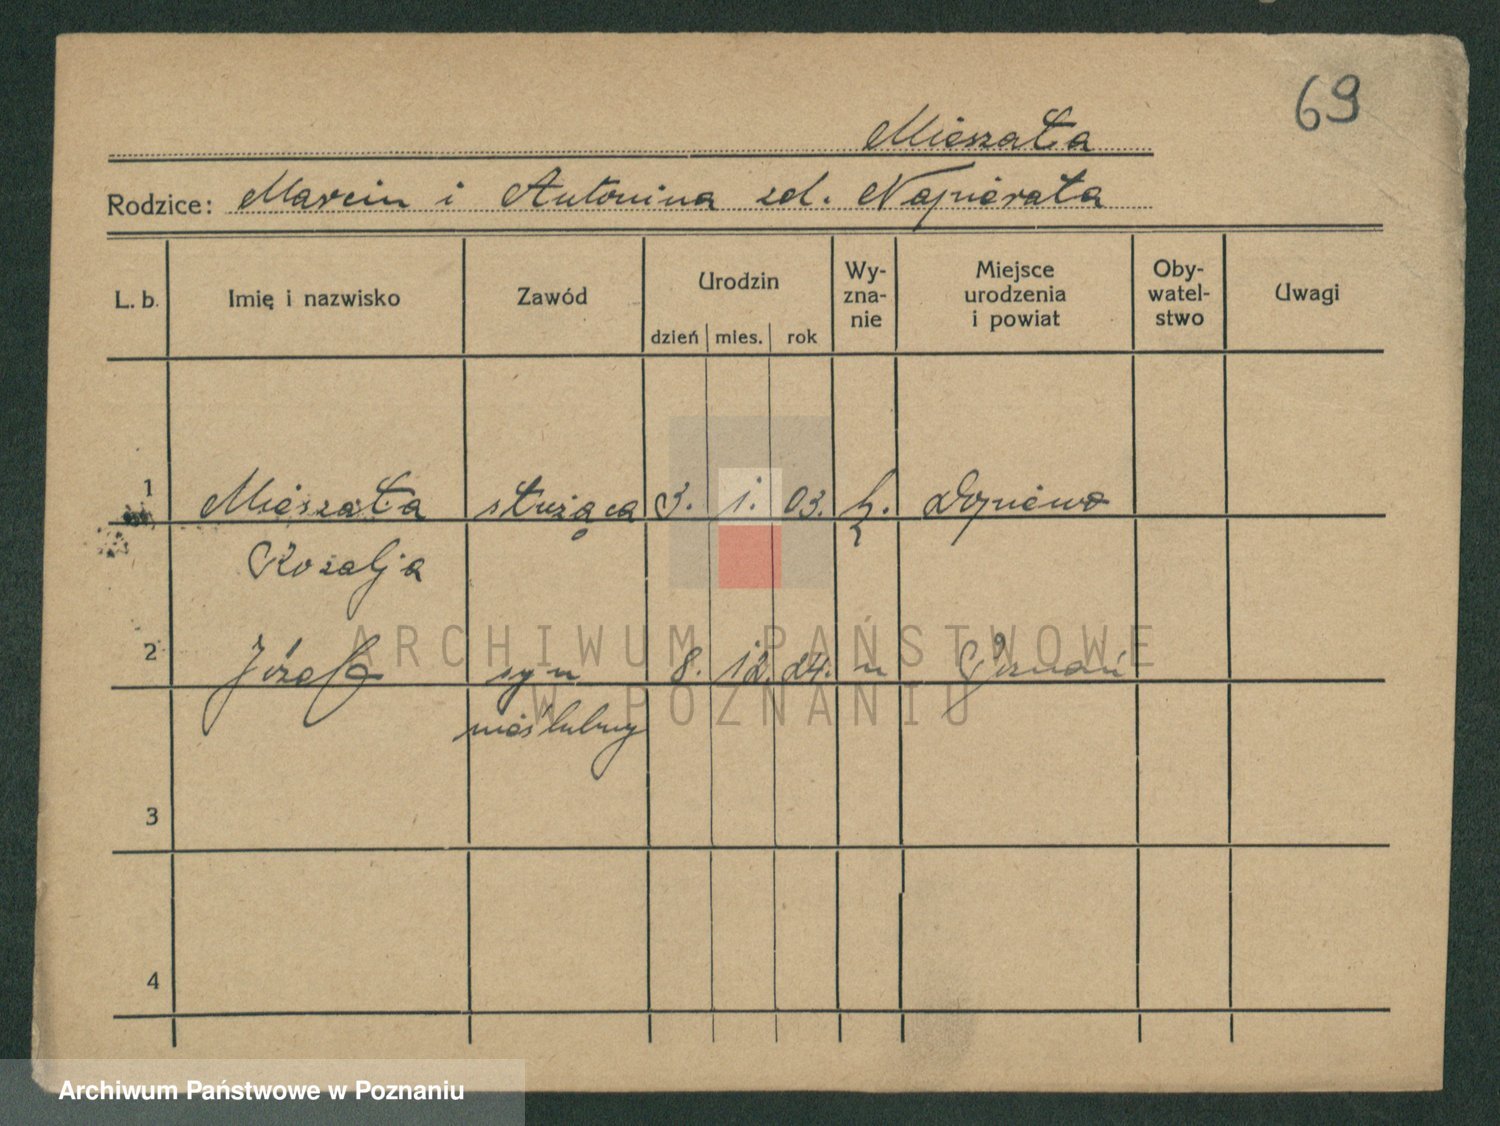 69
Mieszała
Rodzice: Marcin i Antonina zd. Napierała
L. b. Imię i nazwisko Zawód Urodzin dzień mies. rok Wy-zna-nie Miejsce urodzenia i powiat Oby-watel-stwo Uwagi
1 Mieszała służąca 3. 1. 03. k. Dopiewo
Rozalja
2 Józef syn 8. 12. 24. n Poznań
nieślubny
3
4
ARCHIWUM PAŃSTWOWE
W POZNANIU
Archiwum Państwowe w Poznaniu